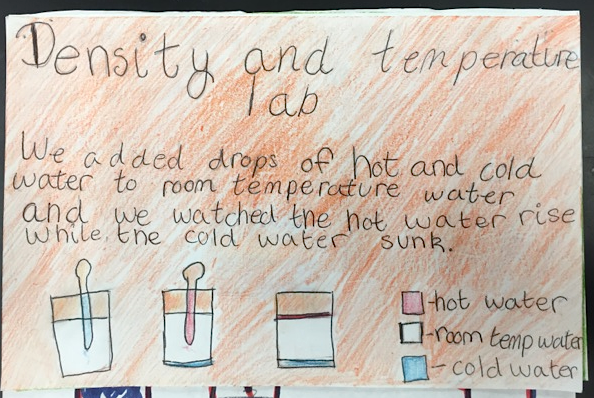 Density and temperature
lab
We added drops of hot and cold
water to room temperature water
and we watched the hot water rise
while the cold water sunk.
-hot water
-room temp water
-cold water